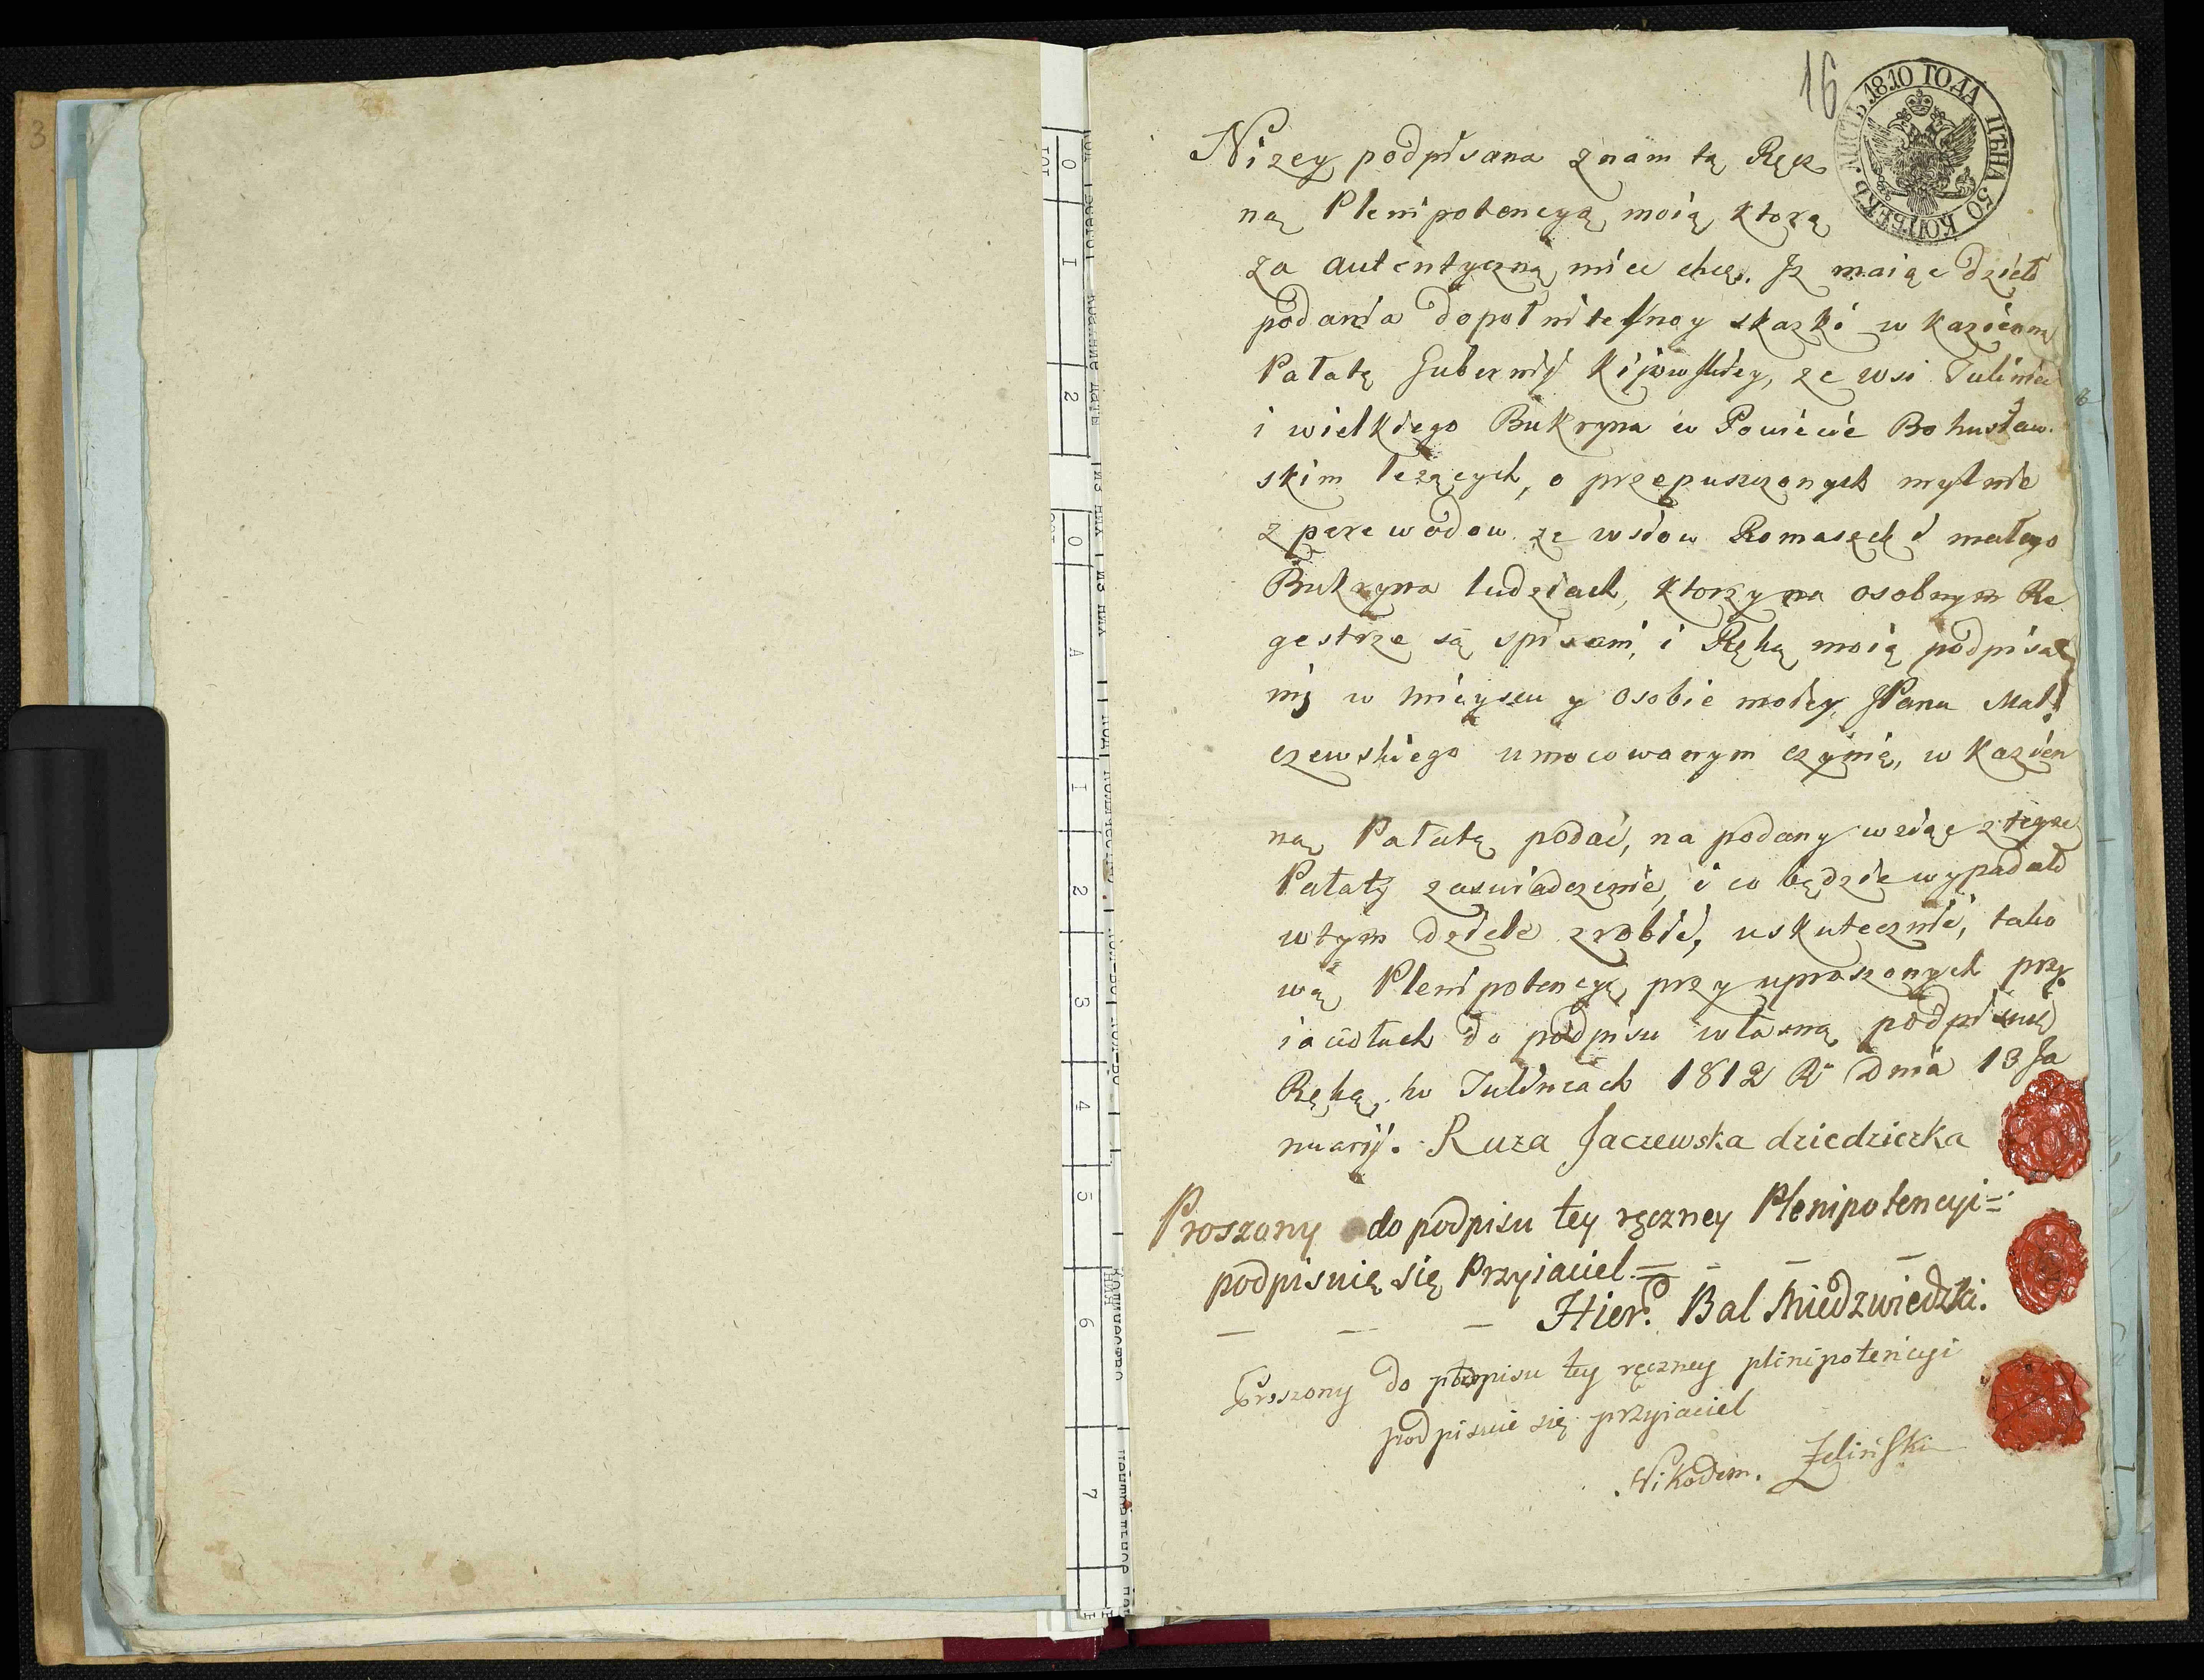 16
ЛИСТЪ 1810 ГОДА ЦѢНА 50 КОПѢЕКЪ.
Nizey podpisana znam tą Ręcz
ną Plenipotencyą moią, ktorą
za autentyczną miec chcę. Jz maiąc dzieło
podania dopołnitelnoy skazki w kazienną
Pałatę Gubernij Kijowskiey, ze wsi Tuliniec
i wielkiego Bukryna w Powiecie Bohusław.
skim lezących, o przepuszczonych mylnie
z perewodow ze wsiow Romaszek i małego
Bukryna ludziach, ktorzy na osobnym Re
gestrze są spisani, i Ręką moią podpisa
ni, w mieyscu y osobie moiey JPana Mał
czewskiego umocowanym czynię, w kazien
ną Pałatę podać, na podany wziąć z teyze
Pałaty zaswiadczenie, i co będzie wypadało
w tym dziele zrobić, uskutecznić, tako
wą Plenipotencyę przy uproszonych przy
iaciołach do podpisu własną podpisuię
Ręką, w Tulincach 1812 R. dnia 13 Ja
nuarij. Ruza Jaczewska dziedziczka
Proszony do podpisu tey ręcznéy Plenipotencyi=
podpisuię się Przyiaciel=
Hier: Bal Miedzwiedzki.
Proszony do podpisu tey ręczney plinipotencyi
podpisuie się przyiaciel
Nikodem. Zelinski
3
0
1
2
0
А
1
2
3
4
5
6
7